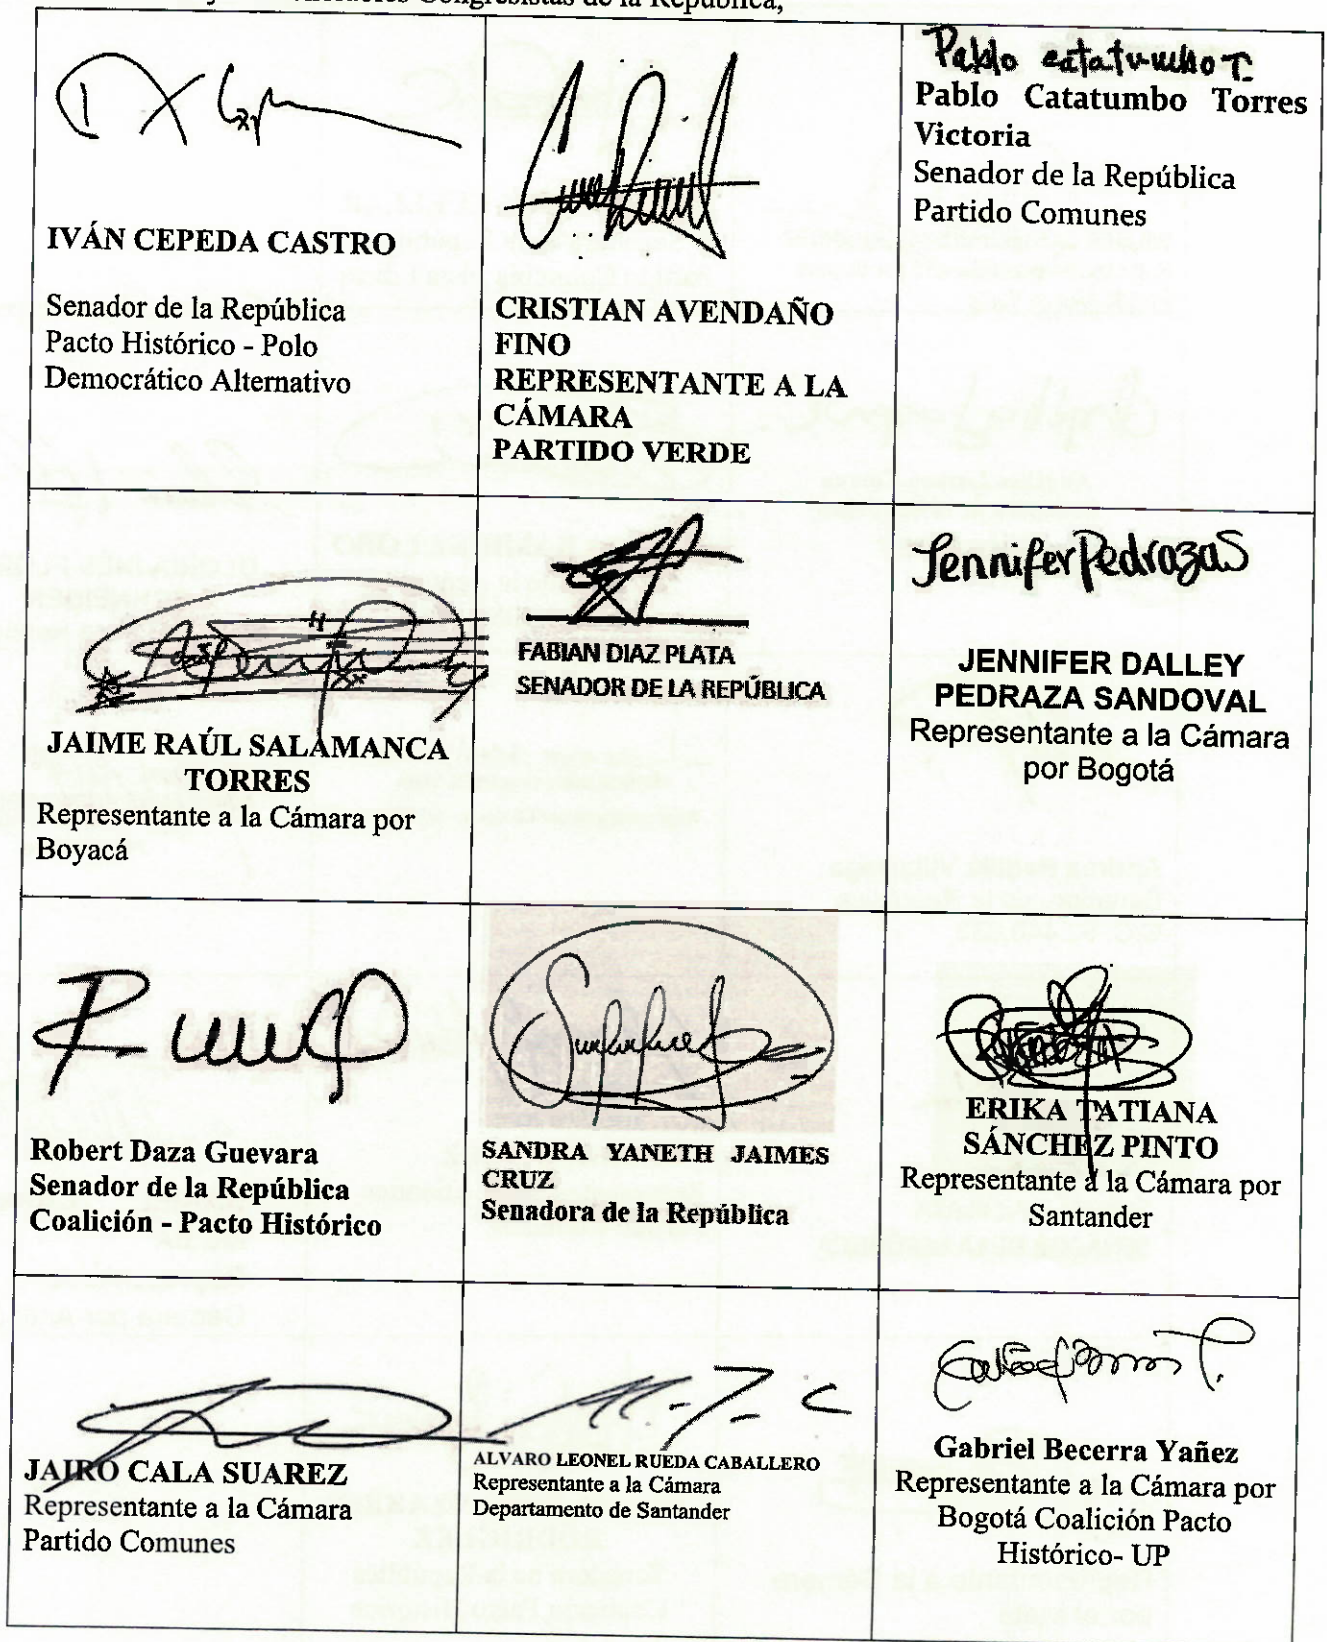 Congresistas de la República,
IVÁN CEPEDA CASTRO
Senador de la República
Pacto Histórico - Polo
Democrático Alternativo
CRISTIAN AVENDAÑO
FINO
REPRESENTANTE A LA
CÁMARA
PARTIDO VERDE
Pablo Catatumbo T.
Pablo Catatumbo Torres
Victoria
Senador de la República
Partido Comunes
JAIME RAÚL SALAMANCA
TORRES
Representante a la Cámara por
Boyacá
FABIAN DIAZ PLATA
SENADOR DE LA REPÚBLICA
Jennifer Pedraza S
JENNIFER DALLEY
PEDRAZA SANDOVAL
Representante a la Cámara
por Bogotá
Robert Daza Guevara
Senador de la República
Coalición - Pacto Histórico
SANDRA YANETH JAIMES
CRUZ
Senadora de la República
ERIKA TATIANA
SÁNCHEZ PINTO
Representante a la Cámara por
Santander
JAIRO CALA SUAREZ
Representante a la Cámara
Partido Comunes
ALVARO LEONEL RUEDA CABALLERO
Representante a la Cámara
Departamento de Santander
Gabriel Becerra Yañez
Representante a la Cámara por
Bogotá Coalición Pacto
Histórico- UP